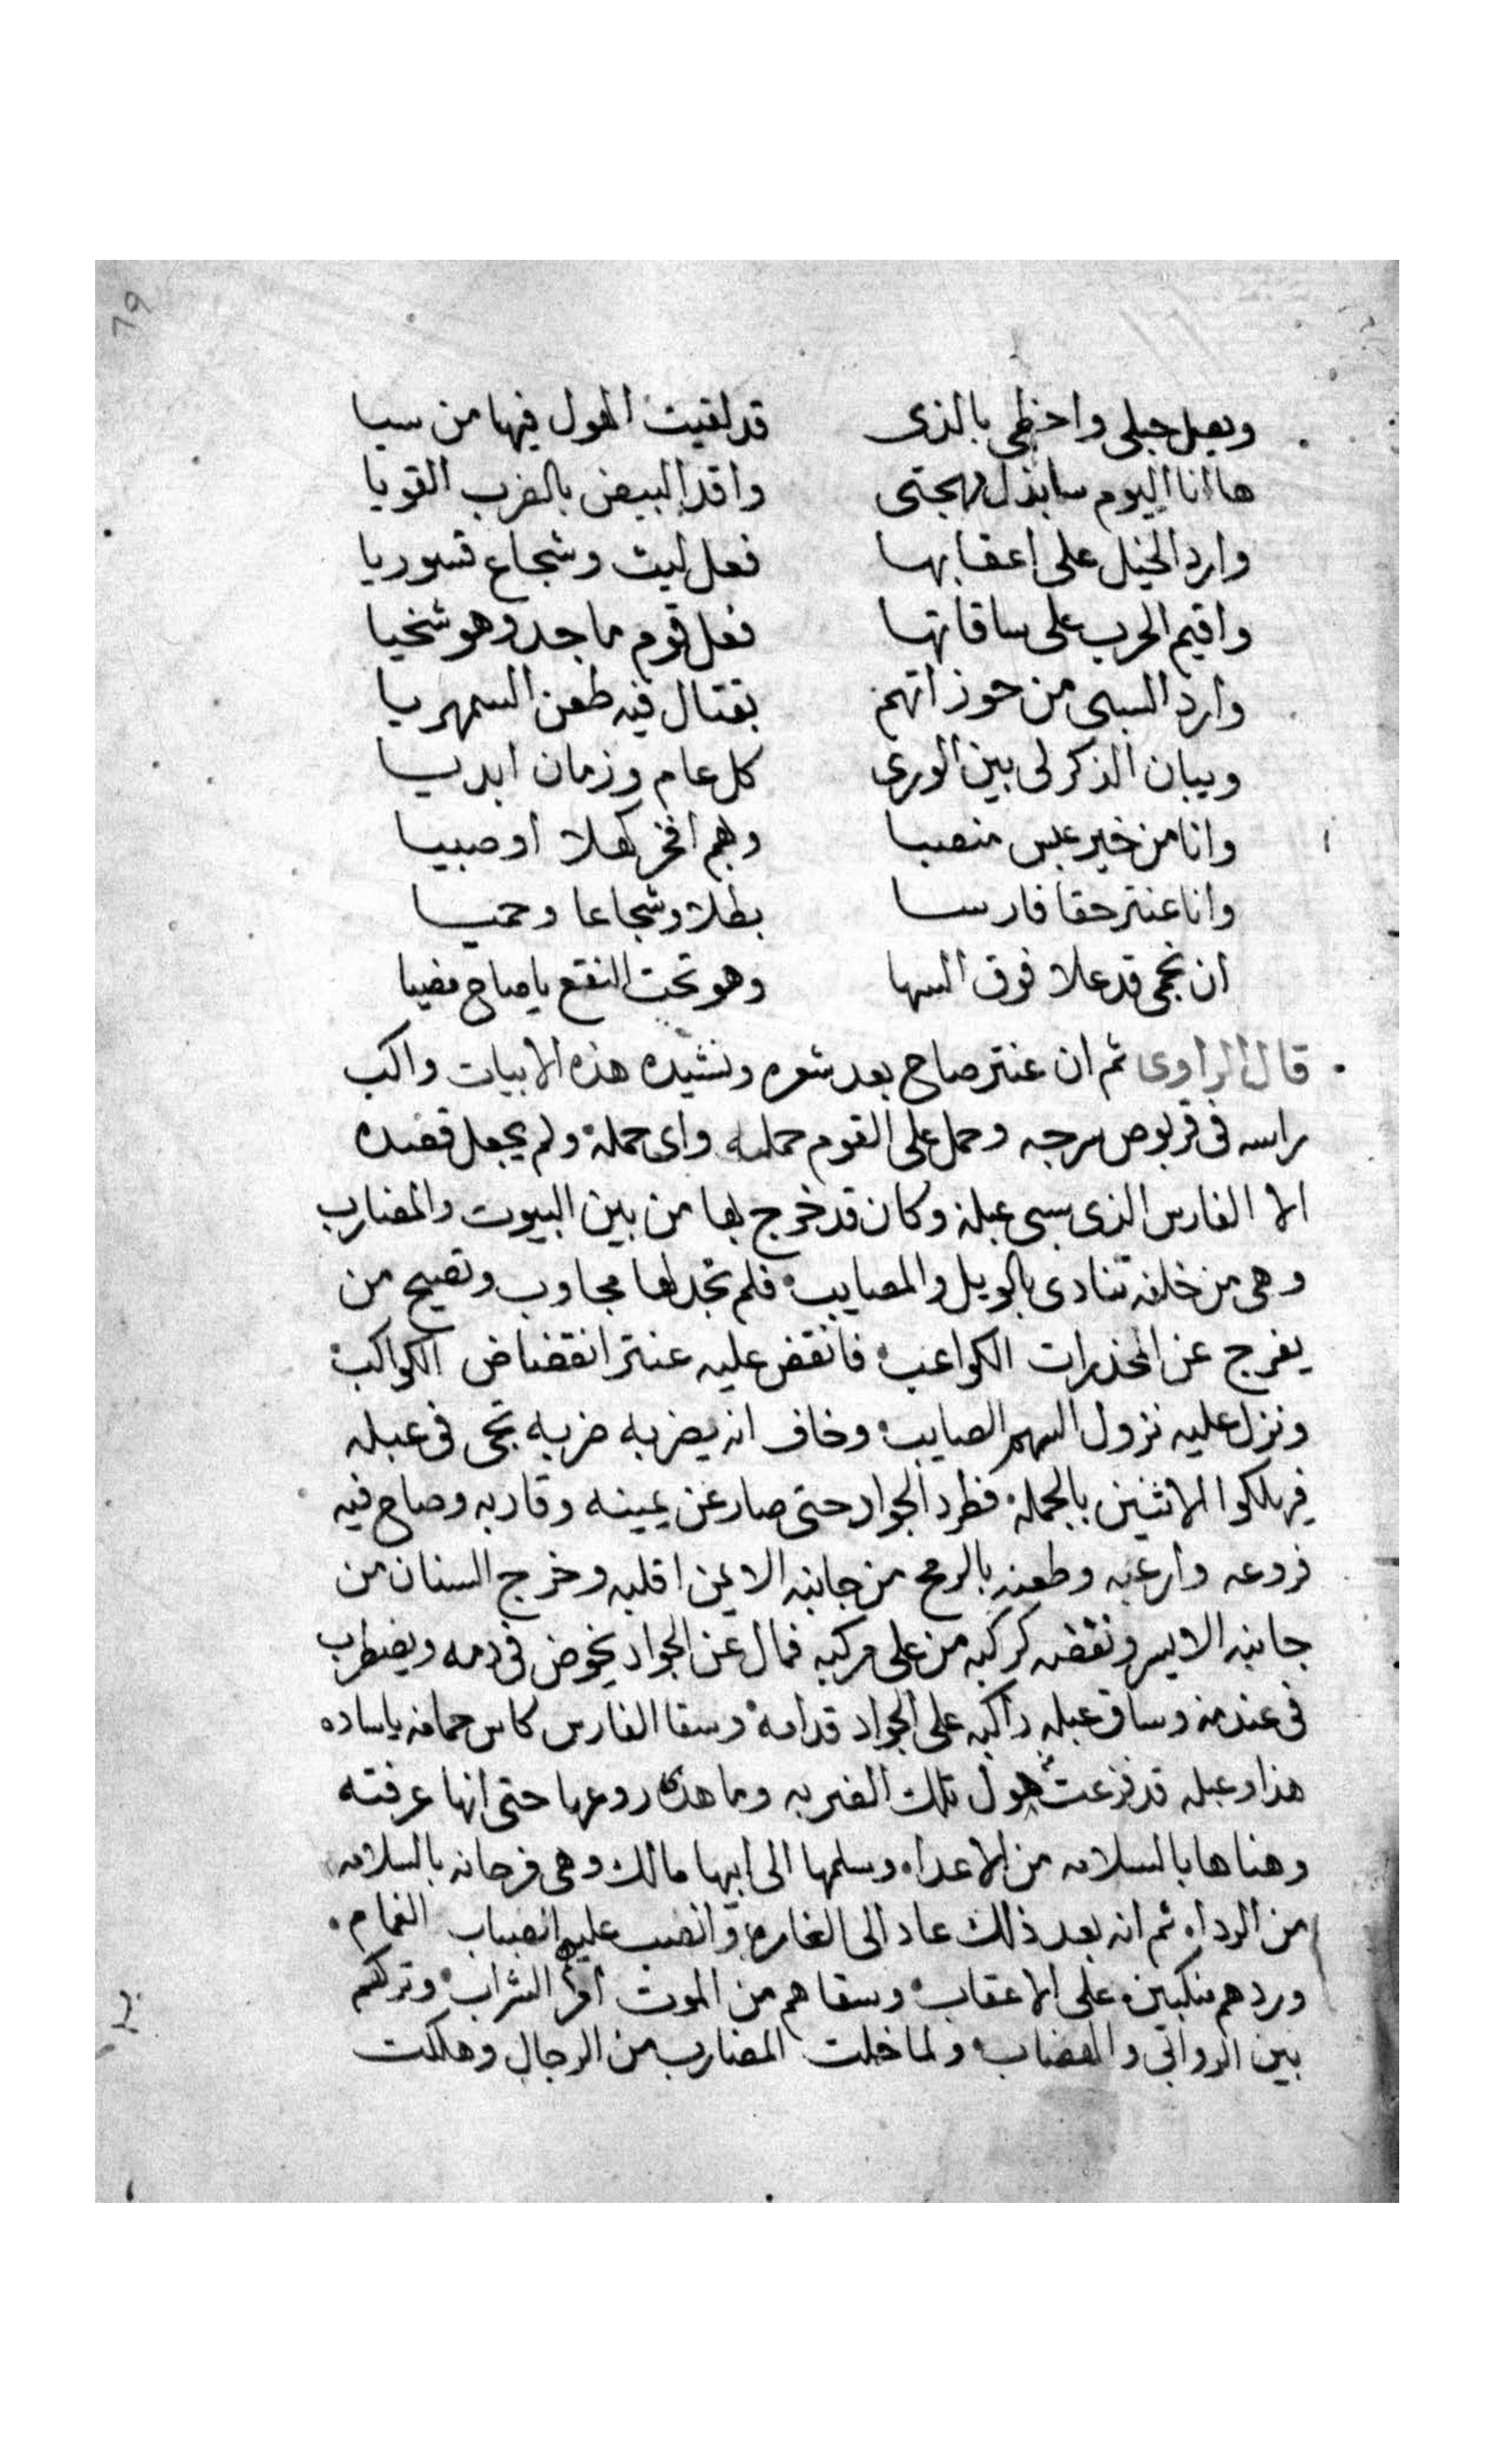 ٦٩
ويصل حبلى واحظى بالذى قد لقيت الهول فيها من سبيا
ها انا اليوم سابذل مهجتى واقد البيض بالضرب القويا
وارد الخيل على اعقابها فعل ليث وشجاع قسوريا
واقيم الحرب على ساقاتها فعل قوم ماجد وهو سخيا
وارد السبى من حوزاتهم بقتال فيه طعن السمهريا
ويبان الذكر لى بين الورى كل عام وزمان ابديا
وانا من خير عبس منصبا وهم افخر كهلا او صبيا
وانا عنتر حقا فارسا بطلا وشجاعا وحميا
ان نجمى قد علا فوق السها وهو تحت النقع يا صاح مضيا
قال الراوى ثم ان عنتر صاح بعد شعره ونشيده هذه الابيات واكب
راسه فى قربوص سرجه وحمل على القوم حمله واى حملة ولم يجعل قصده
الا الفارس الذى سبى عبلة وكان قد خرج بها من بين البيوت والمضارب
وهى من خلفه تنادى بالويل والمصايب فلم تجد لها مجاوب وتصيح من
يفرج عن المخدرات الكواعب فانقض عليه عنتر انقضاض الكواكب
ونزل عليه نزول السهم الصايب وخاف انه يضربه ضربه تجى فى عبله
فيهلكوا الاثنين بالجملة فطرد الجواد حتى صار عن يمينه وقاربه وصاح فيه
فروعه وارعبه وطعنه بالرمح من جانبه الايمن اقلبه وخرج السنان من
جانبه الايسر ونقضه كركبه من على مركبه فمال عن الجواد يخوض فى دمه ويضطرب
فى عندمه وساق عبله راكبه على الجواد قدامه وسقا الفارس كاس حمامه ياساده
هذا وعبله قد فزعت هول تلك الضربه وما هدى روعها حتى انها عرفته
وهناها بالسلامه من الاعداء وسلمها الى ابيها مالك وهى فرحانه بالسلامه
من الرداء ثم انه بعد ذلك عاد الى الغاره وانصب عليهم انصباب الغمام
وردهم منكبين على الاعقاب وسقاهم من الموت امر الشراب وتركهم
بين الروابى والهضاب ولما خلت المضارب من الرجال وهلكت